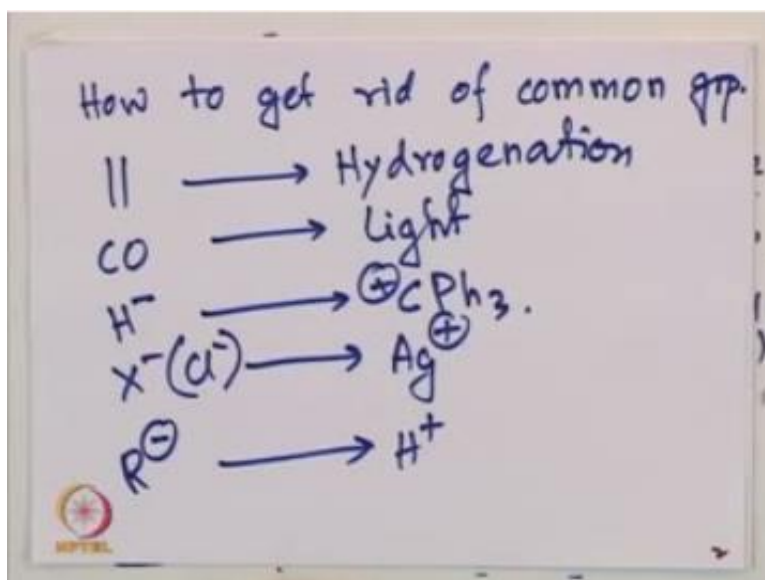 How to get rid of common grp.
|| ⟶ Hydrogenation
CO ⟶ Light
H⁻ ⟶ ⊕CPh₃.
X⁻(Cl⁻) ⟶ Ag⊕
R⊖ ⟶ H⁺
NPTEL
2